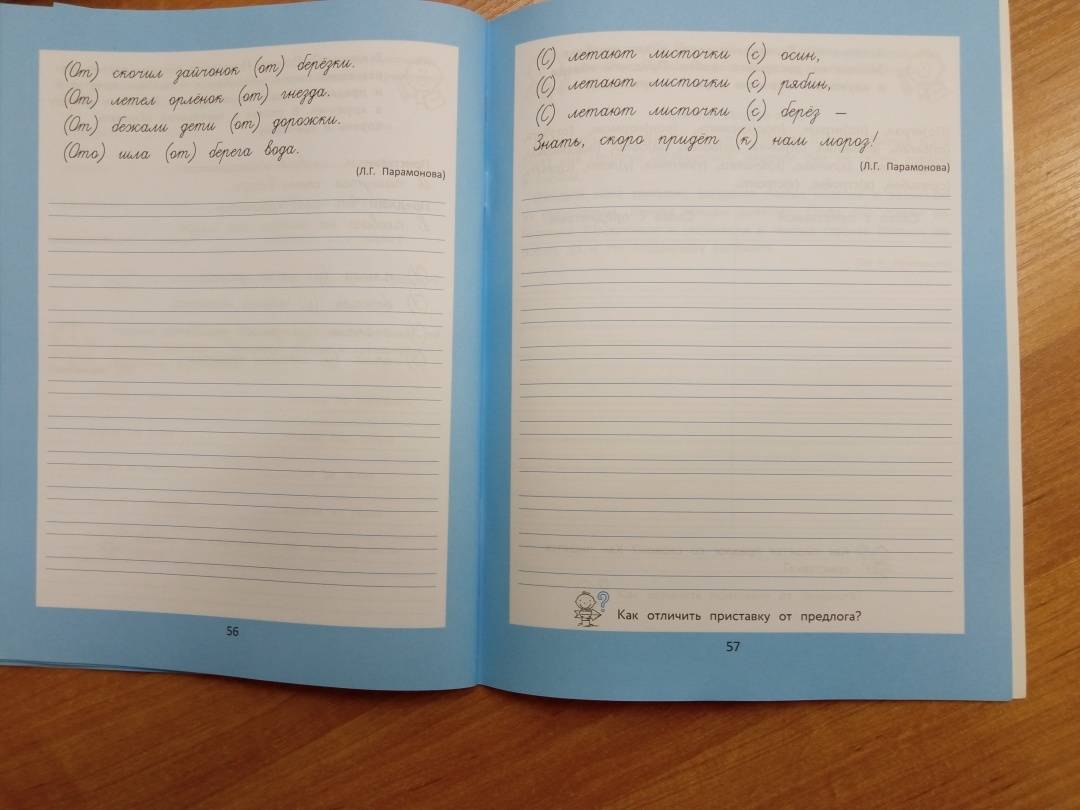 (От) скочил зайчонок (от) берёзки.
(От) летел орлёнок (от) гнезда.
(От) бежали дети (от) дорожки.
(Ото) шла (от) берега вода.
(Л.Г. Парамонова)
56
(С) летают листочки (с) осин,
(С) летают листочки (с) рябин,
(С) летают листочки (с) берёз —
Знать, скоро придёт (к) нам мороз!
(Л.Г. Парамонова)
?
Как отличить приставку от предлога?
57